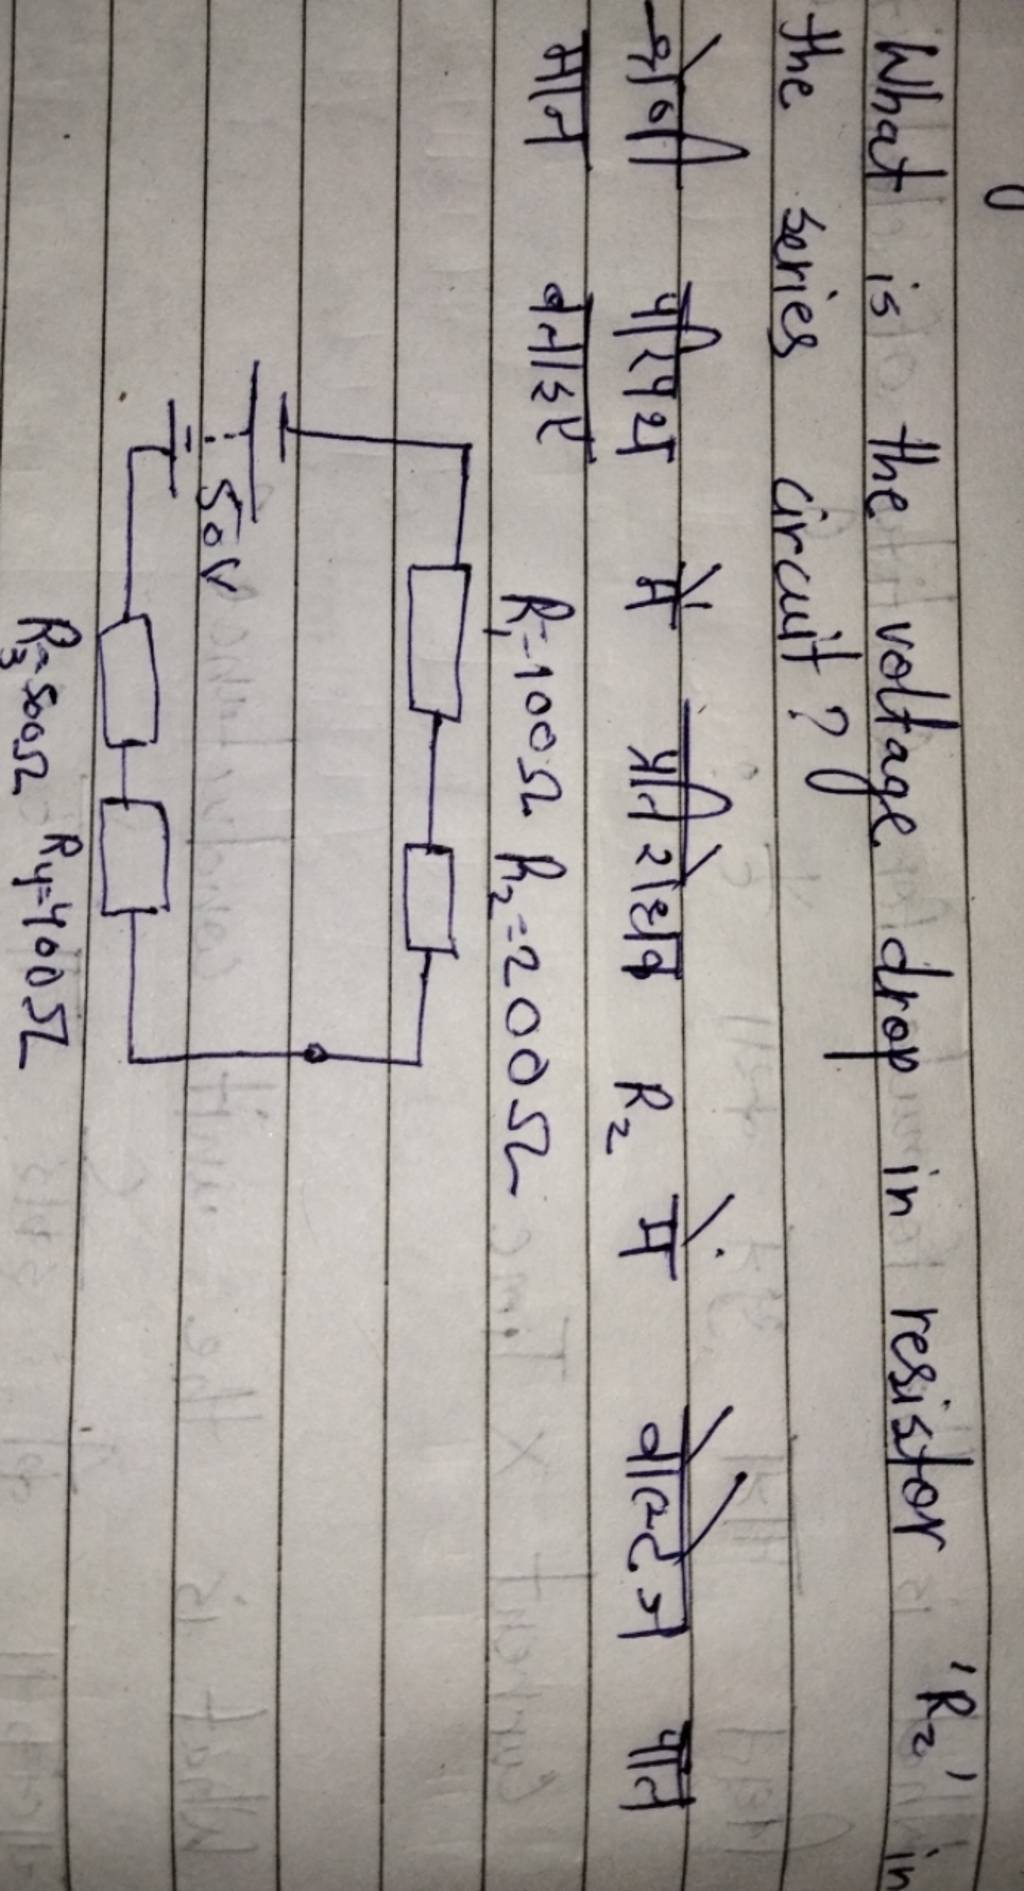 What is the voltage drop in resistor 'R2' in
the series circuit?
श्रेणी परिपथ में प्रतिरोधक R2 में वोल्टेज पात
मान बताइए
R1=100Ω R2=200Ω
50V
R3=500Ω R4=400Ω